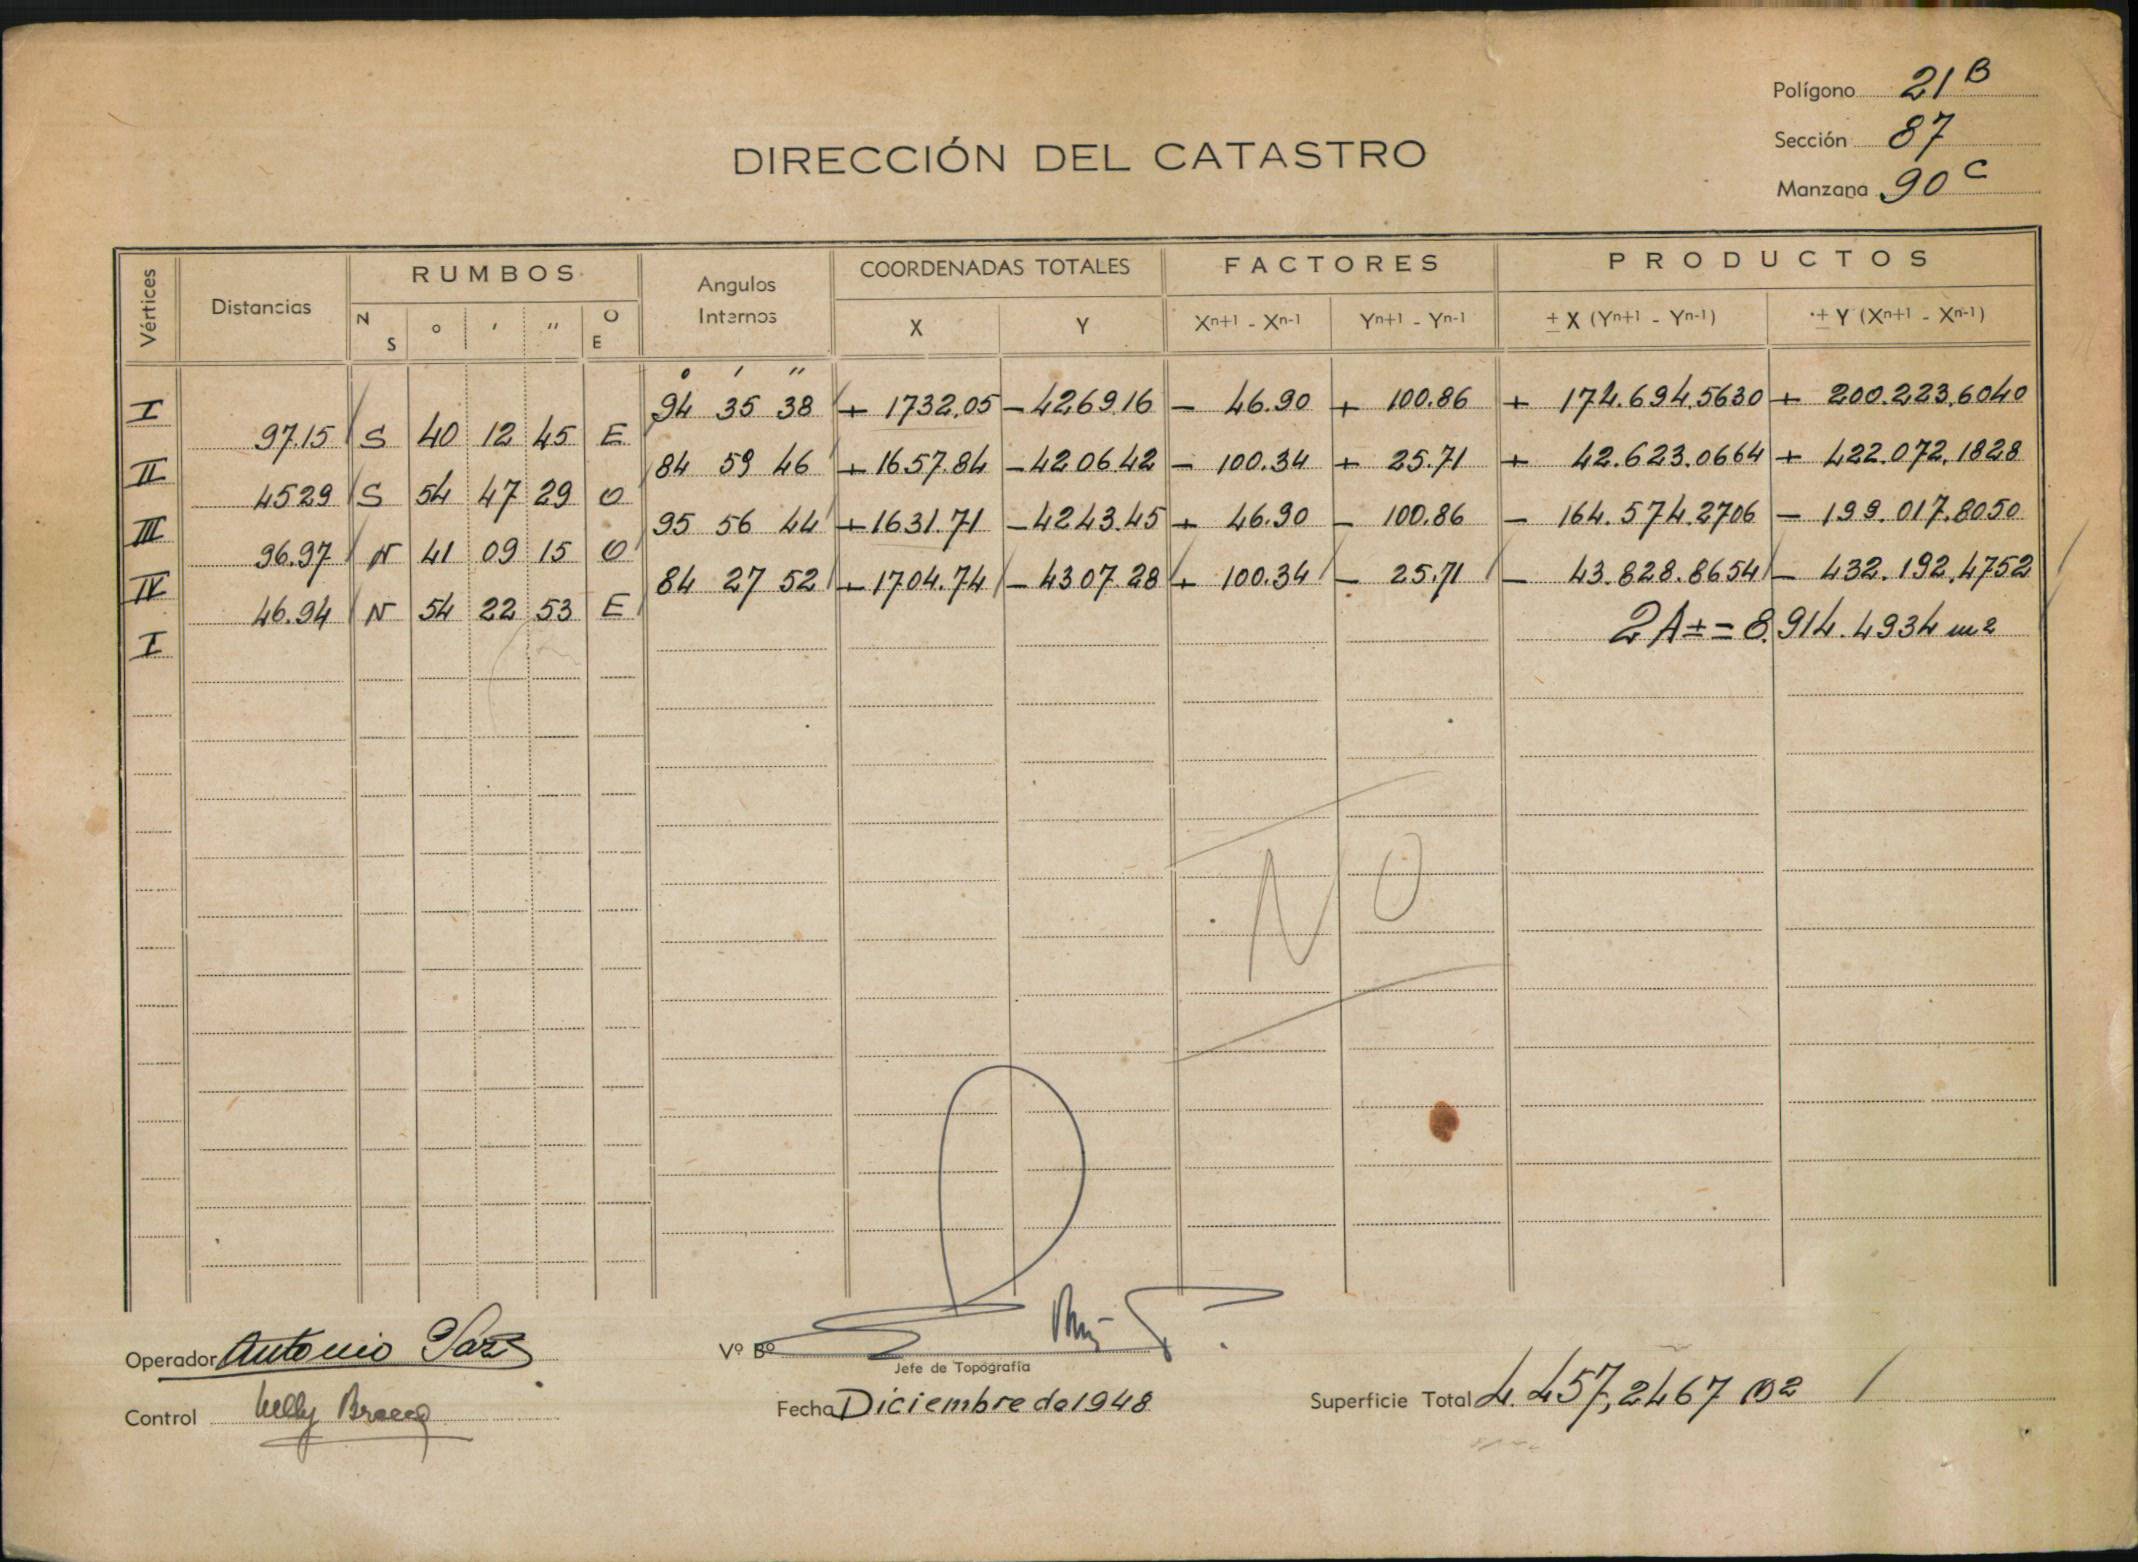 Polígono 21 B
Sección 87
Manzana 90 C
DIRECCIÓN DEL CATASTRO
Vértices Distancias RUMBOS Angulos Internos COORDENADAS TOTALES FACTORES PRODUCTOS
N S ° ' " O E X Y Xn+1 - Xn-1 Yn+1 - Yn-1 ± X (Yn+1 - Yn-1) ± Y (Xn+1 - Xn-1)
° ' "
I 94 35 38 + 1732.05 - 4269.16 - 46.90 + 100.86 + 174.694.5630 + 200.223.6040
97.15 S 40 12 45 E
II 84 59 46 + 1657.84 - 4206.42 - 100.34 + 25.71 + 42.623.0664 + 422.072.1828
45.29 S 54 47 29 O
III 95 56 44 + 1631.71 - 4243.45 + 46.90 - 100.86 - 164.574.2706 - 199.017.8050
96.97 N 41 09 15 O
IV 84 27 52 + 1704.74 - 4307.28 + 100.34 - 25.71 - 43.828.8654 - 432.192,4752
46.94 N 54 22 53 E
I 2A± = 8.914.4934 m2
NO
Operador Antonio
Vº Bº
Jefe de Topografía
Control Nelly
Fecha Diciembre de 1948
Superficie Total 4.457,2467 m2